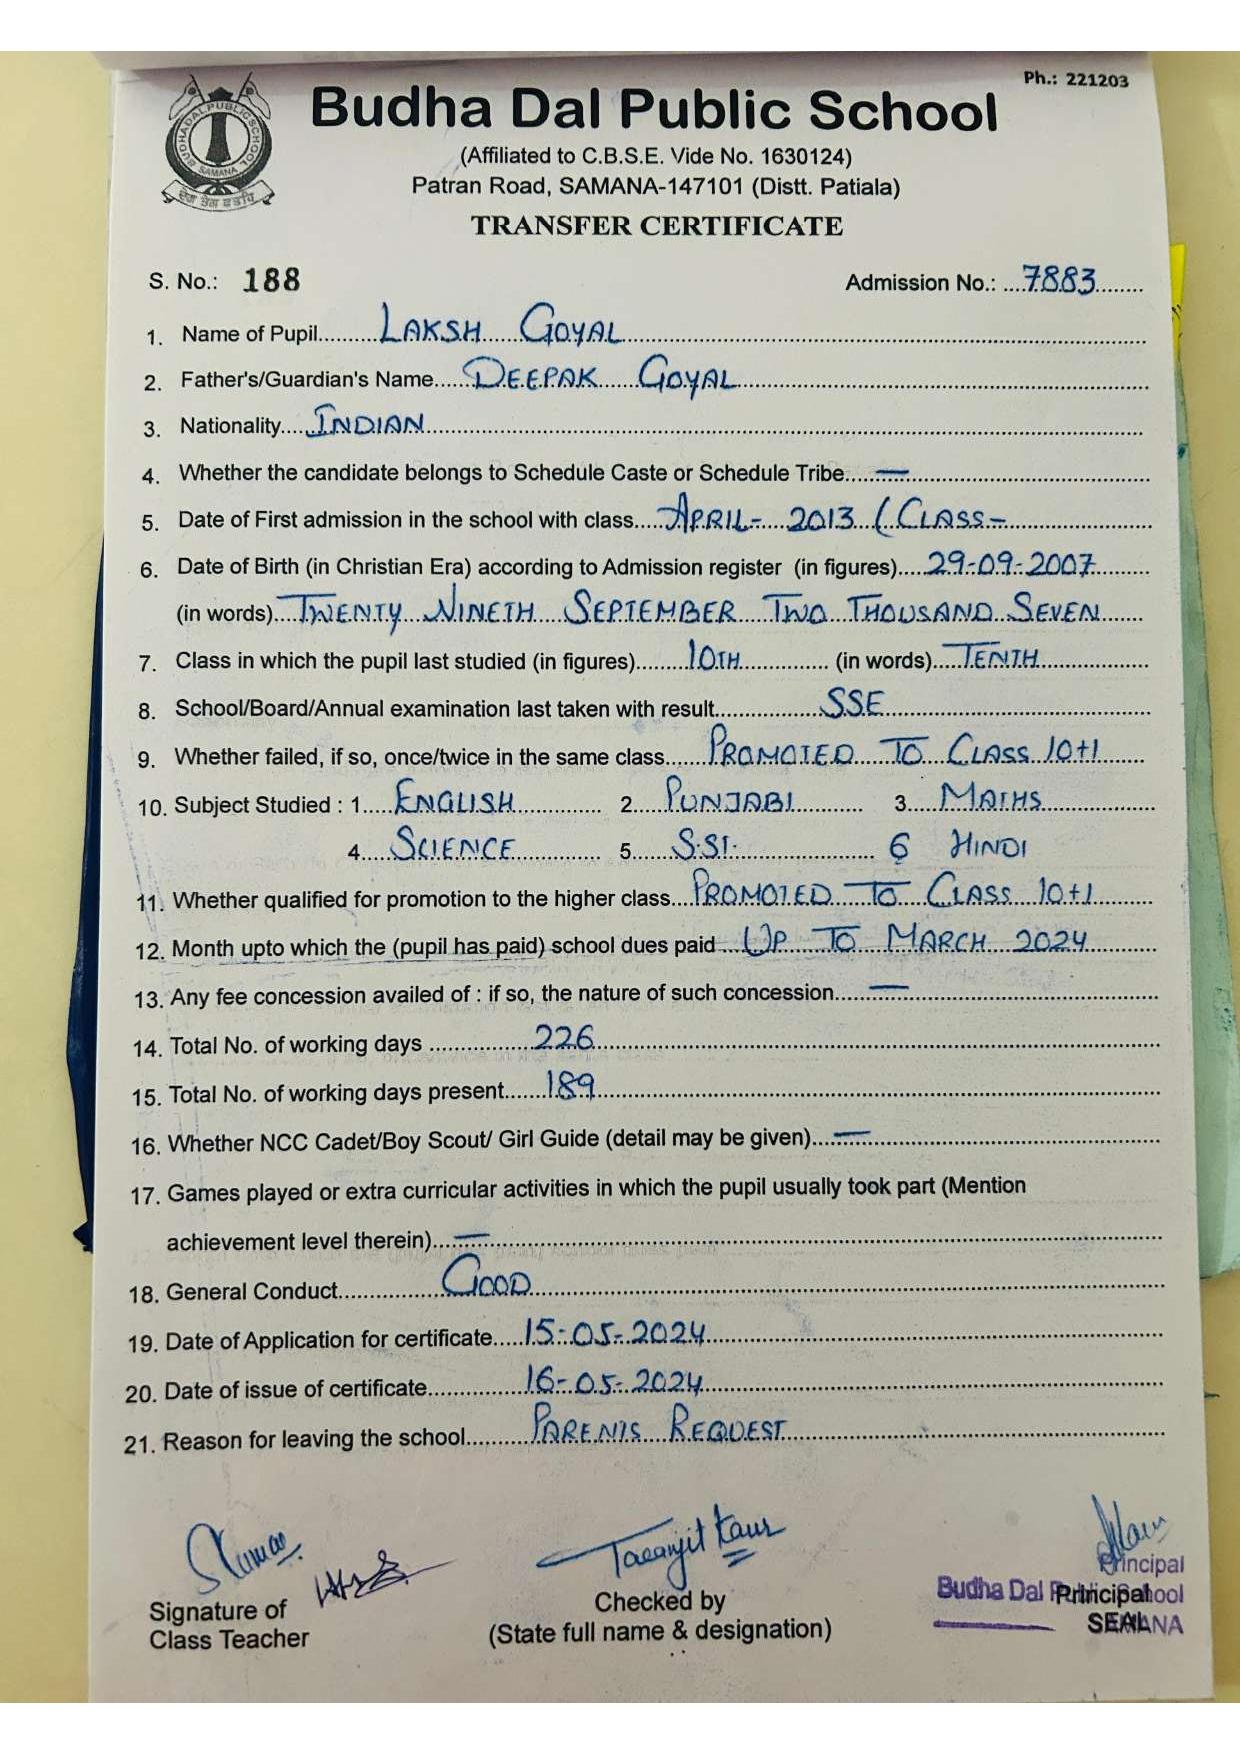 Ph.: 221203
BUDHA DAL PUBLIC SCHOOL
SAMANA
Budha Dal Public School
(Affiliated to C.B.S.E. Vide No. 1630124)
Patran Road, SAMANA-147101 (Distt. Patiala)
TRANSFER CERTIFICATE
S. No.: 188 Admission No.: 7883
1. Name of Pupil LAKSH GOYAL
2. Father's/Guardian's Name DEEPAK GOYAL
3. Nationality INDIAN
4. Whether the candidate belongs to Schedule Caste or Schedule Tribe —
5. Date of First admission in the school with class APRIL- 2013 (CLASS-
6. Date of Birth (in Christian Era) according to Admission register (in figures) 29-09-2007
(in words) TWENTY NINETH SEPTEMBER TWO THOUSAND SEVEN
7. Class in which the pupil last studied (in figures) 10TH (in words) TENTH
8. School/Board/Annual examination last taken with result SSE
9. Whether failed, if so, once/twice in the same class PROMOTED TO CLASS 10+1
10. Subject Studied : 1. ENGLISH 2. PUNJABI 3. MATHS
4. SCIENCE 5. S.ST. 6 HINDI
11. Whether qualified for promotion to the higher class PROMOTED TO CLASS 10+1
12. Month upto which the (pupil has paid) school dues paid UP TO MARCH 2024
13. Any fee concession availed of : if so, the nature of such concession —
14. Total No. of working days 226
15. Total No. of working days present 189
16. Whether NCC Cadet/Boy Scout/ Girl Guide (detail may be given) —
17. Games played or extra curricular activities in which the pupil usually took part (Mention
achievement level therein) —
18. General Conduct GOOD
19. Date of Application for certificate 15-05-2024
20. Date of issue of certificate 16-05-2024
21. Reason for leaving the school PARENTS REQUEST
Taranjit Kaur
Signature of
Class Teacher
Checked by
(State full name & designation)
Principal
SEAL
Principal
Budha Dal Public School
SAMANA